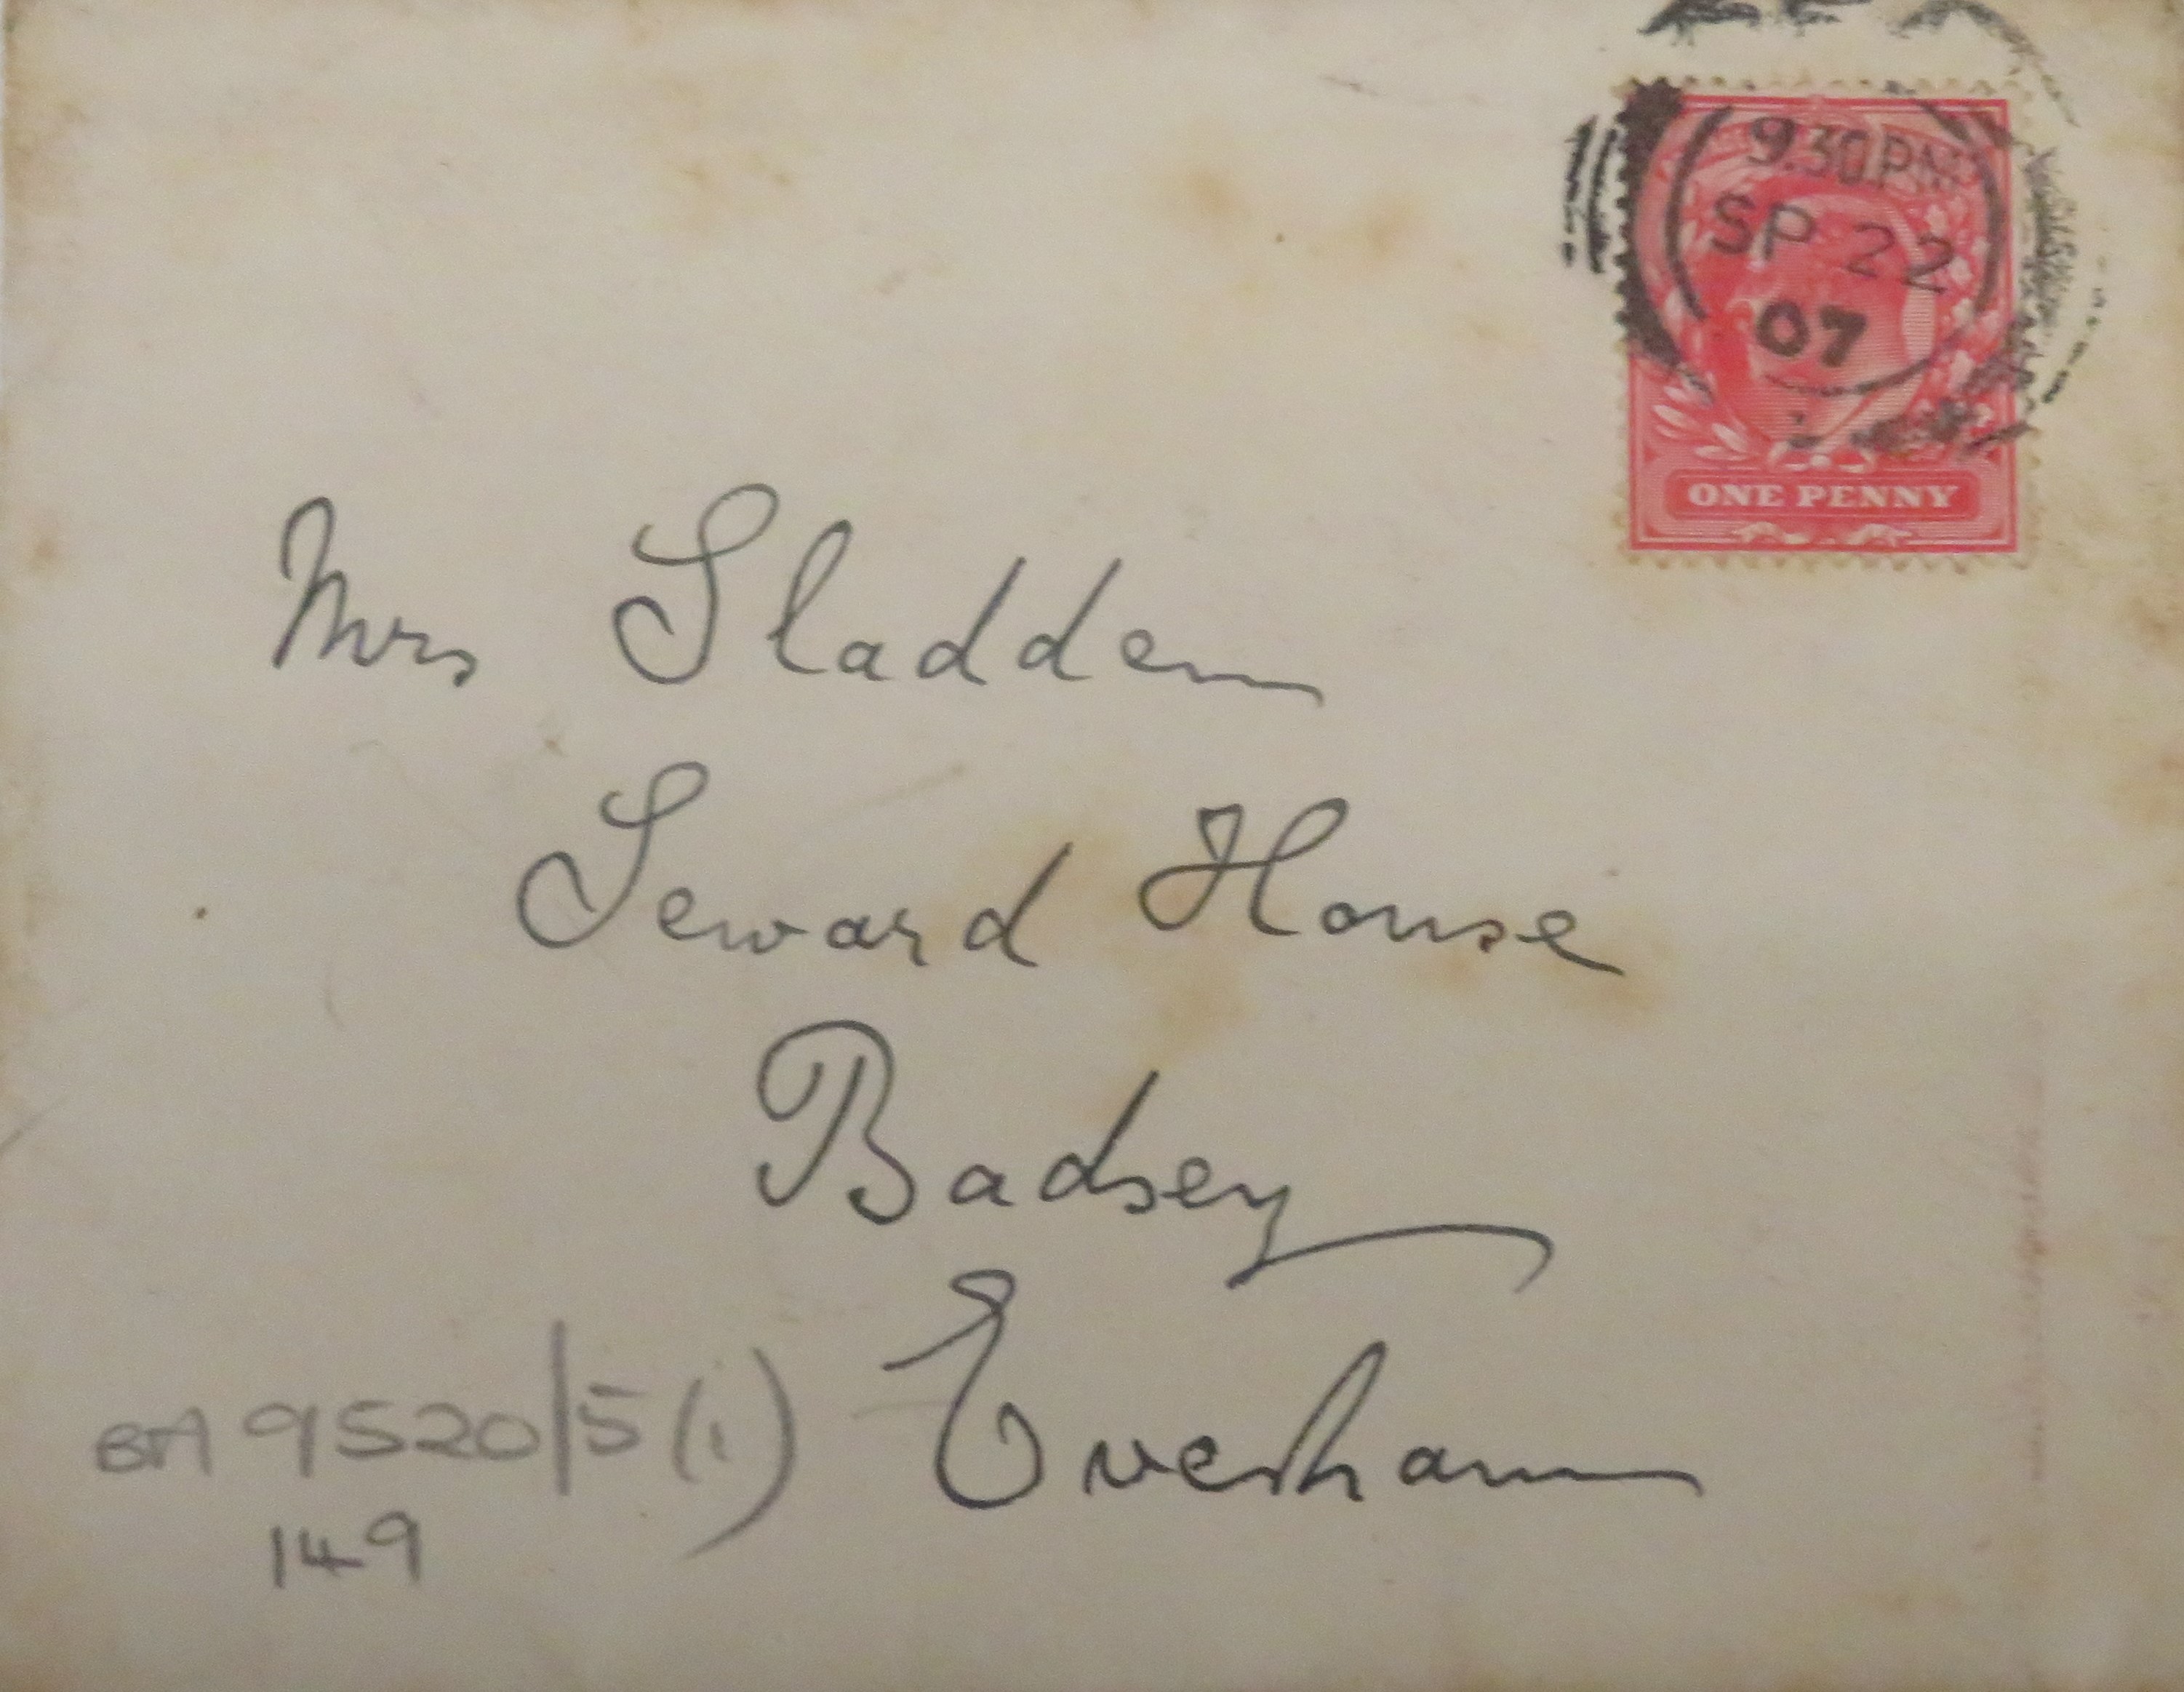 9.30PM
SP 22
07
ONE PENNY
Mrs Sladden
Seward House
Badsey
Evesham
BA 9520/5(i)
149